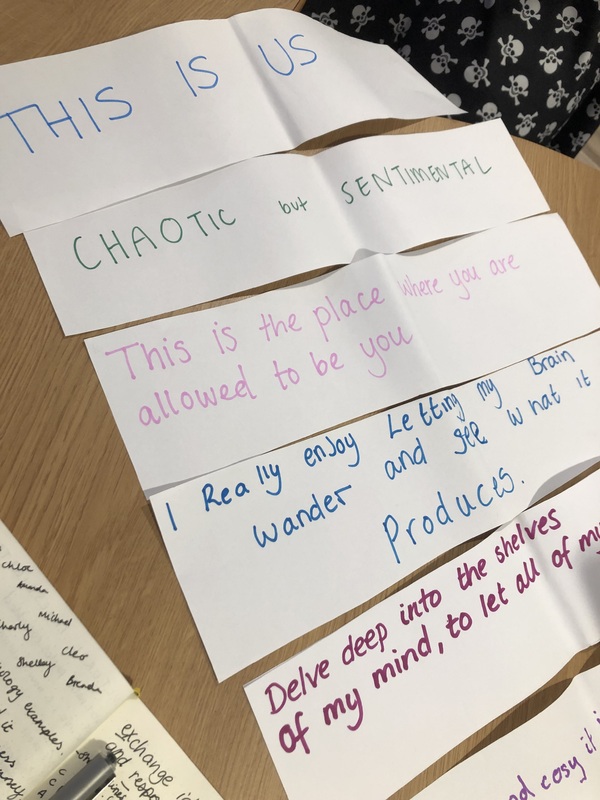 THIS IS US
CHAOTIC but SENTIMENTAL
This is the place where you are
allowed to be you
I Really enjoy Letting my Brain
wander and see what it
Produces.
Delve deep into the shelves
of my mind, to let all of my
cosy it
Chloe
Amanda
Michael
Cleo
Shelley Brenda
examples
exchange
and